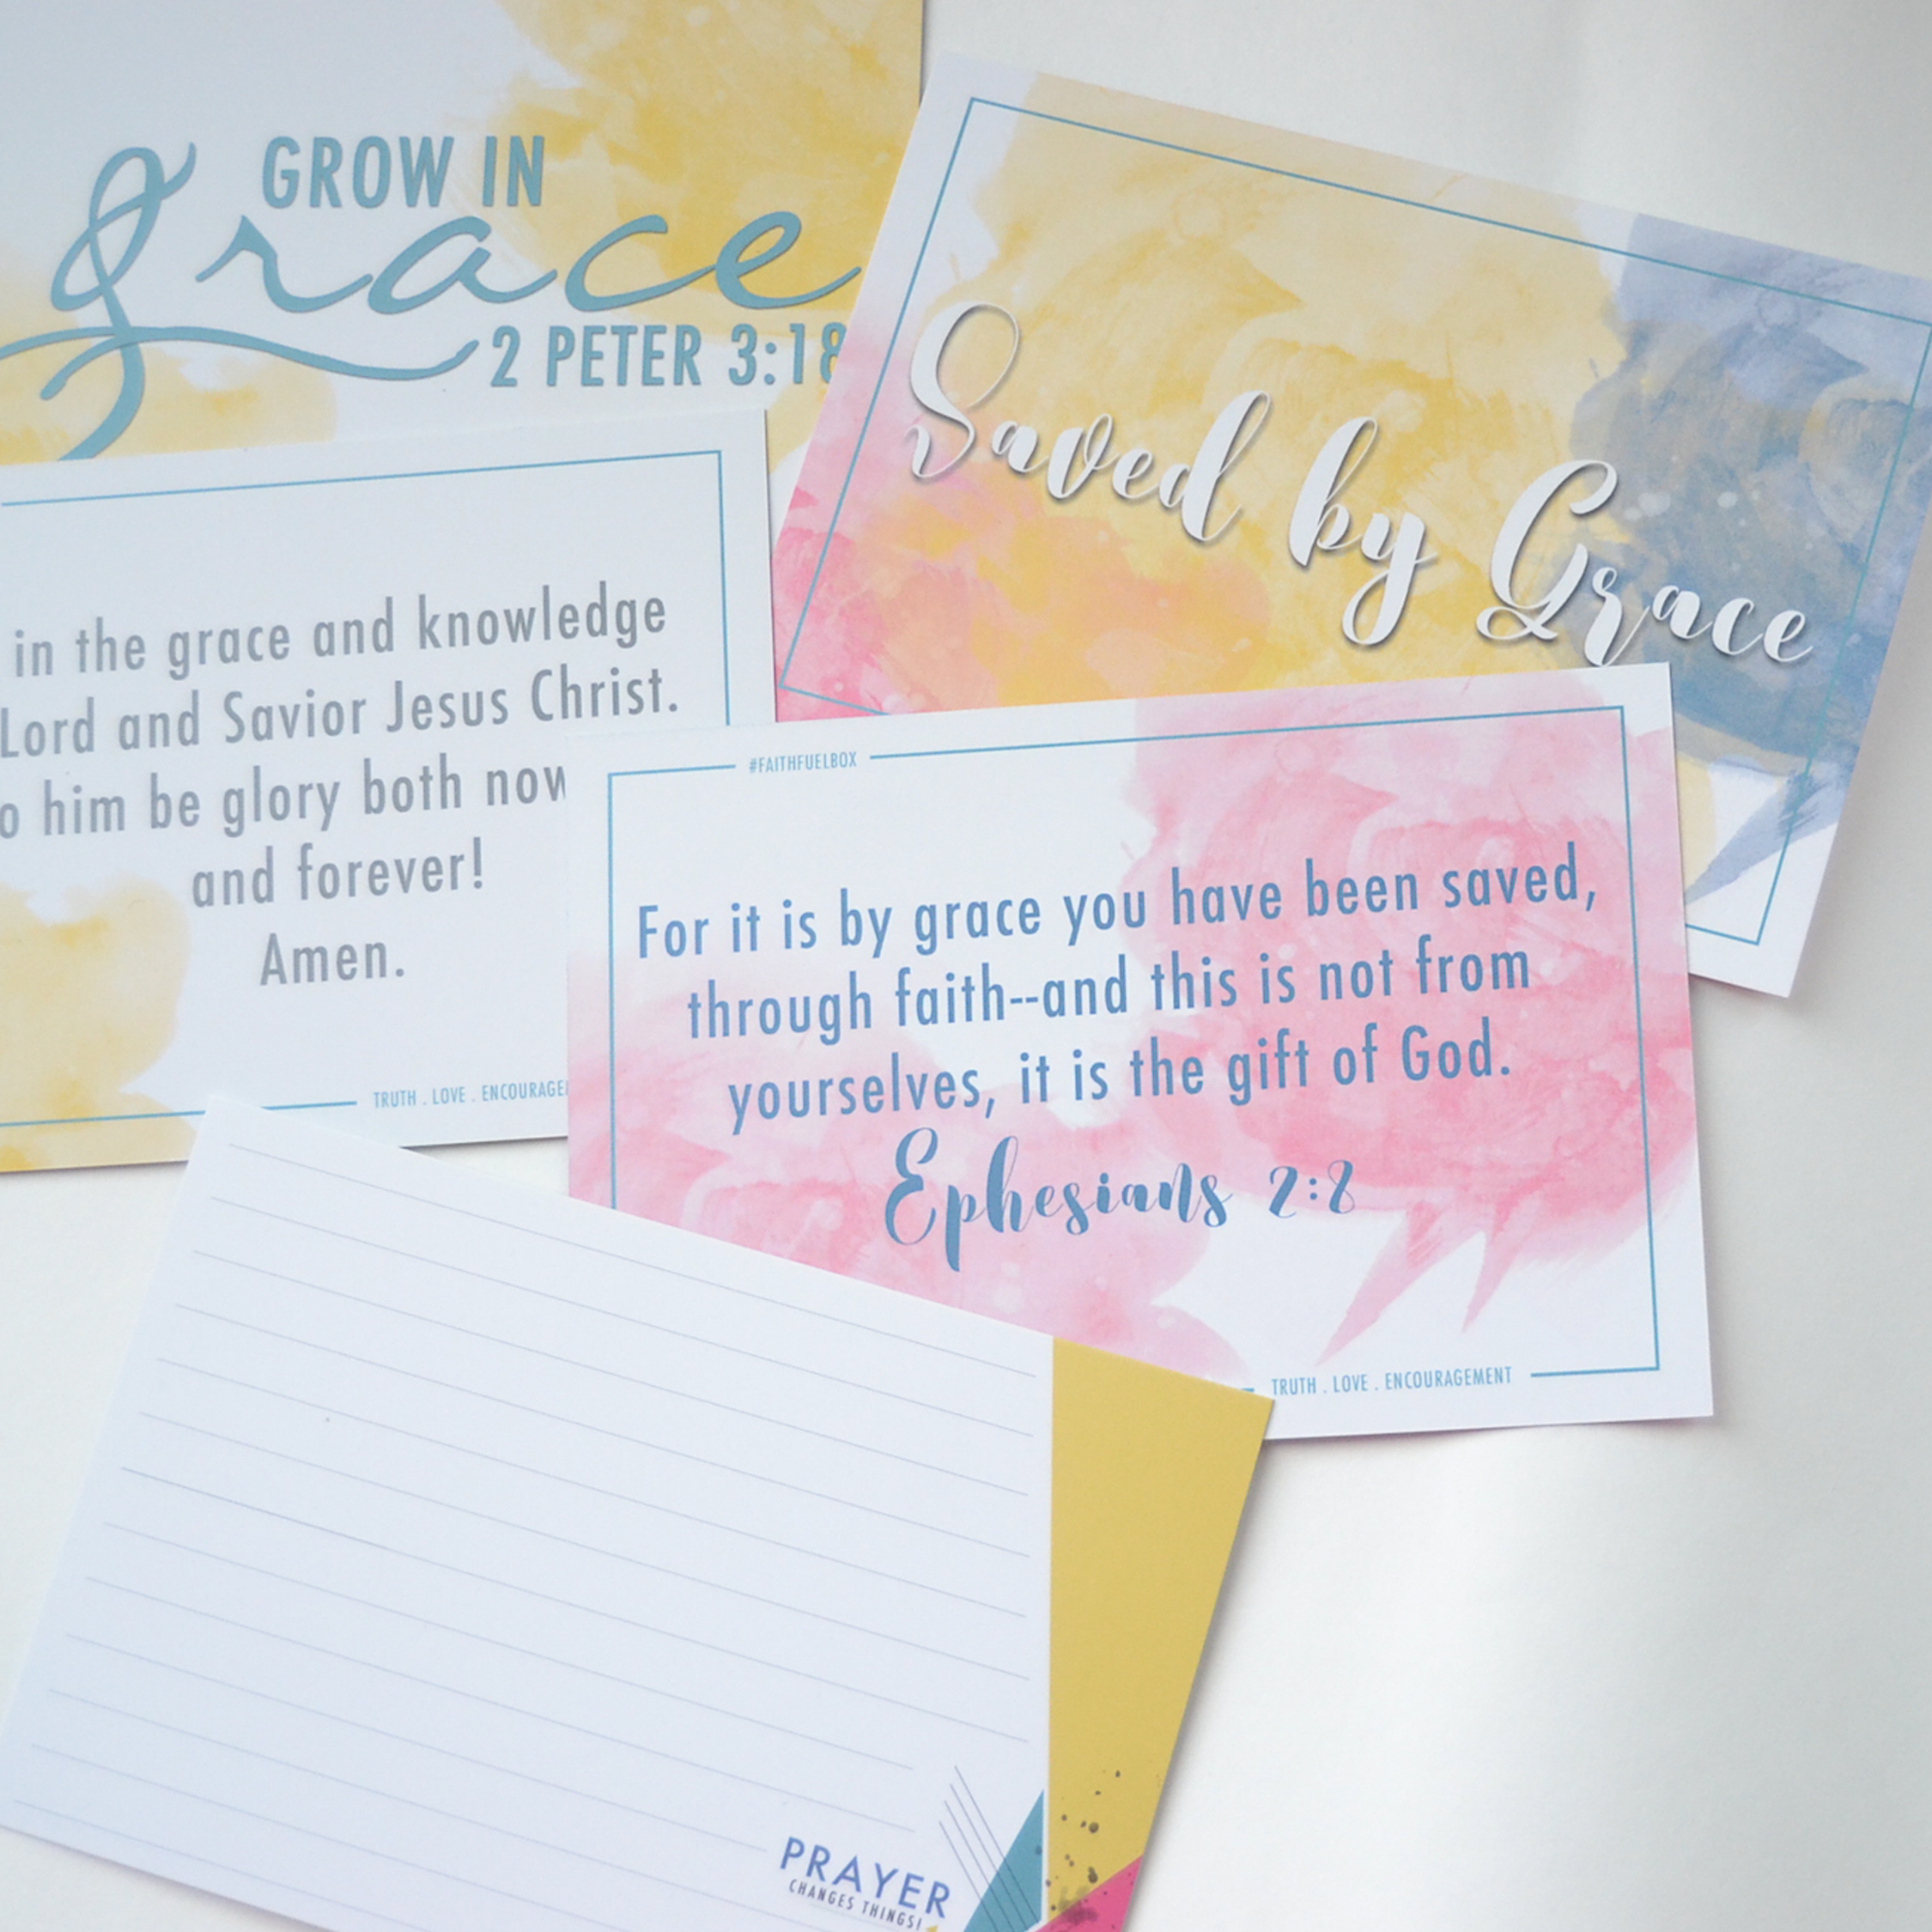 GROW IN
grace
2 PETER 3:18
Saved by Grace
in the grace and knowledge
Lord and Savior Jesus Christ.
him be glory both now
and forever!
Amen.
TRUTH . LOVE .
#FAITHFUELBOX
For it is by grace you have been saved,
through faith--and this is not from
yourselves, it is the gift of God.
Ephesians 2:8
TRUTH . LOVE . ENCOURAGEMENT
PRAYER
CHANGES THINGS!